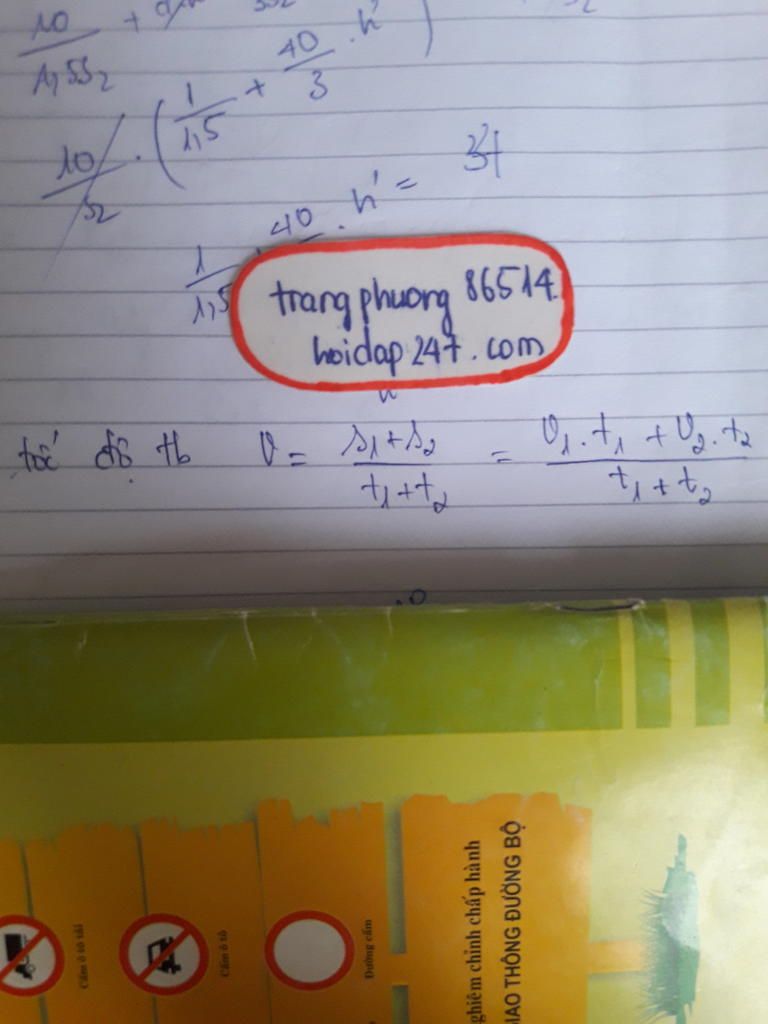 10/1,5S2 +
10/S2 . (1/1,5 + 40/3 . h')
1/1,5 40 . h' = 34
trangphuong 86514.
hoidap247.com
tốc độ tb v = s1+s2/t1+t2 = v1.t1 + v2.t2/t1+t2
Cấm ô tô tải
Cấm ô tô
Đường cấm
ghiêm chỉnh chấp hành
IAO THÔNG ĐƯỜNG BỘ